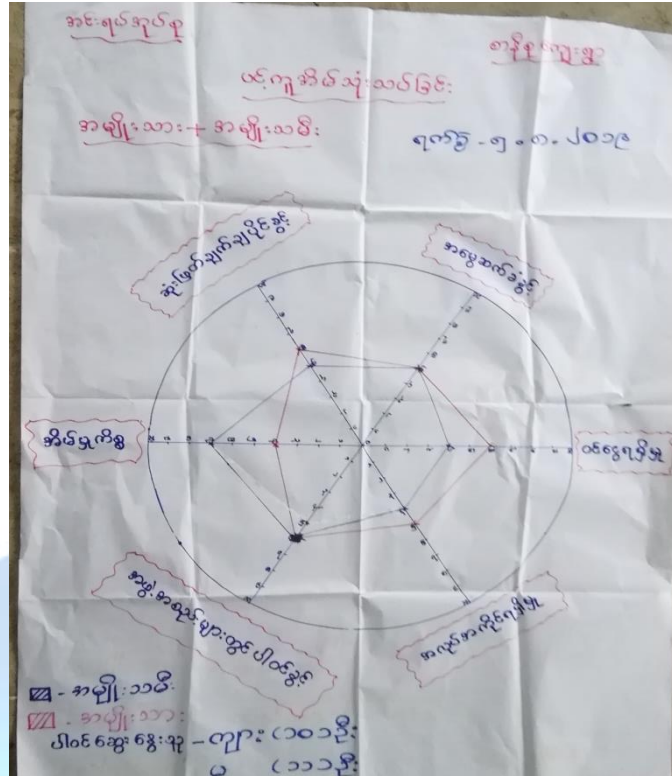 အင်းရယ်အုပ်စု
စာနီနုကျေးရွာ
ပင့်ကူအိမ်သုံးသပ်ခြင်း
အမျိုးသား + အမျိုးသမီး
ရက်စွဲ - ၅.၈.၂၀၁၉
ဆုံးဖြတ်ချက်ချပိုင်ခွင့်
အမွေဆက်ခံခွင့်
အိမ်မှုကိစ္စ
ဝင်ငွေရရှိမှု
အဖွဲ့အစည်းများတွင် ပါဝင်ခွင့်
အလုပ်အကိုင်ရရှိမှု
- အမျိုးသမီး
- အမျိုးသား
ပါဝင်ဆွေးနွေးသူ - ကျား (၁၀)ဦး
မ (၁၁)ဦး